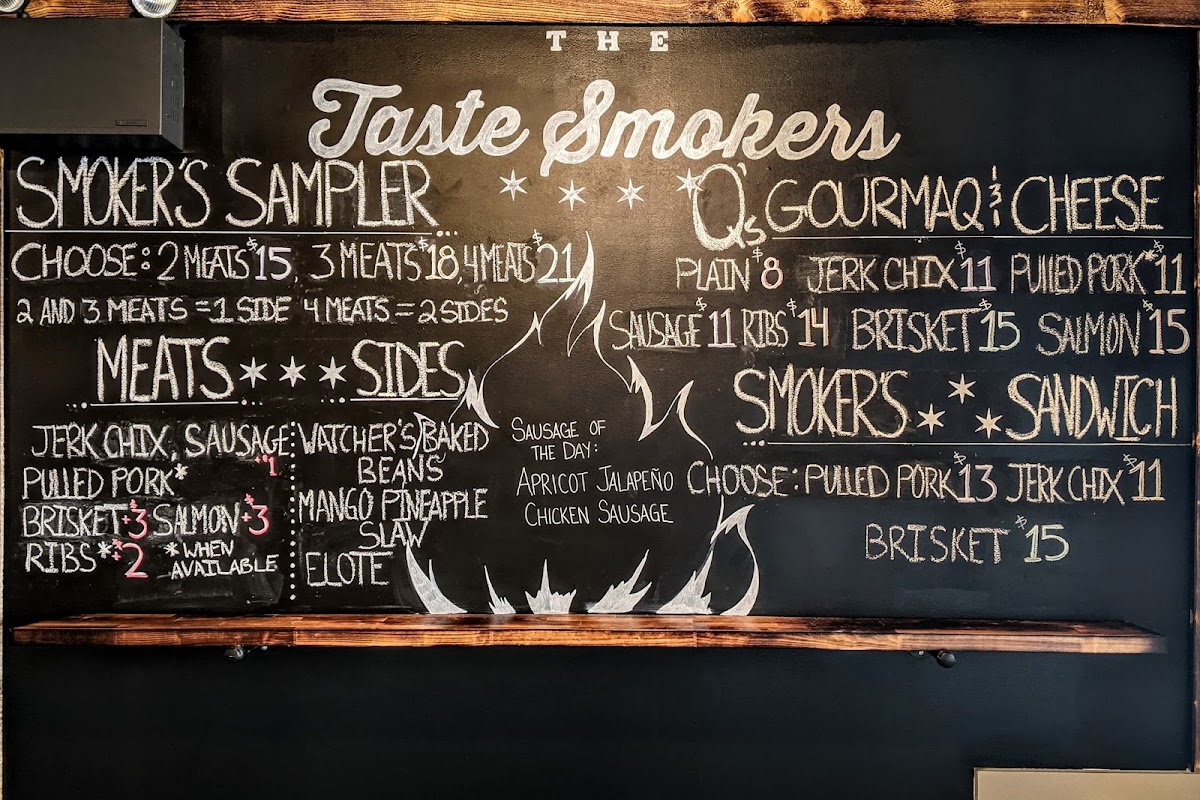 THE
Taste Smokers
SMOKER'S SAMPLER
CHOOSE: 2 MEATS $15, 3 MEATS $18, 4 MEATS $21
2 AND 3 MEATS = 1 SIDE 4 MEATS = 2 SIDES
MEATS
JERK CHIX, SAUSAGE +$1
PULLED PORK*
BRISKET +$3 SALMON +$3
RIBS* +$2 *WHEN
AVAILABLE
SIDES
WATCHER'S/BAKED
BEANS
MANGO PINEAPPLE
SLAW
ELOTE
SAUSAGE OF
THE DAY:
APRICOT JALAPEÑO
CHICKEN SAUSAGE
Q's GOURMAQ & CHEESE
PLAIN $8 JERK CHIX $11 PULLED PORK $11
SAUSAGE $11 RIBS $14 BRISKET $15 SALMON $15
SMOKER'S SANDWICH
CHOOSE: PULLED PORK $13 JERK CHIX $11
BRISKET $15